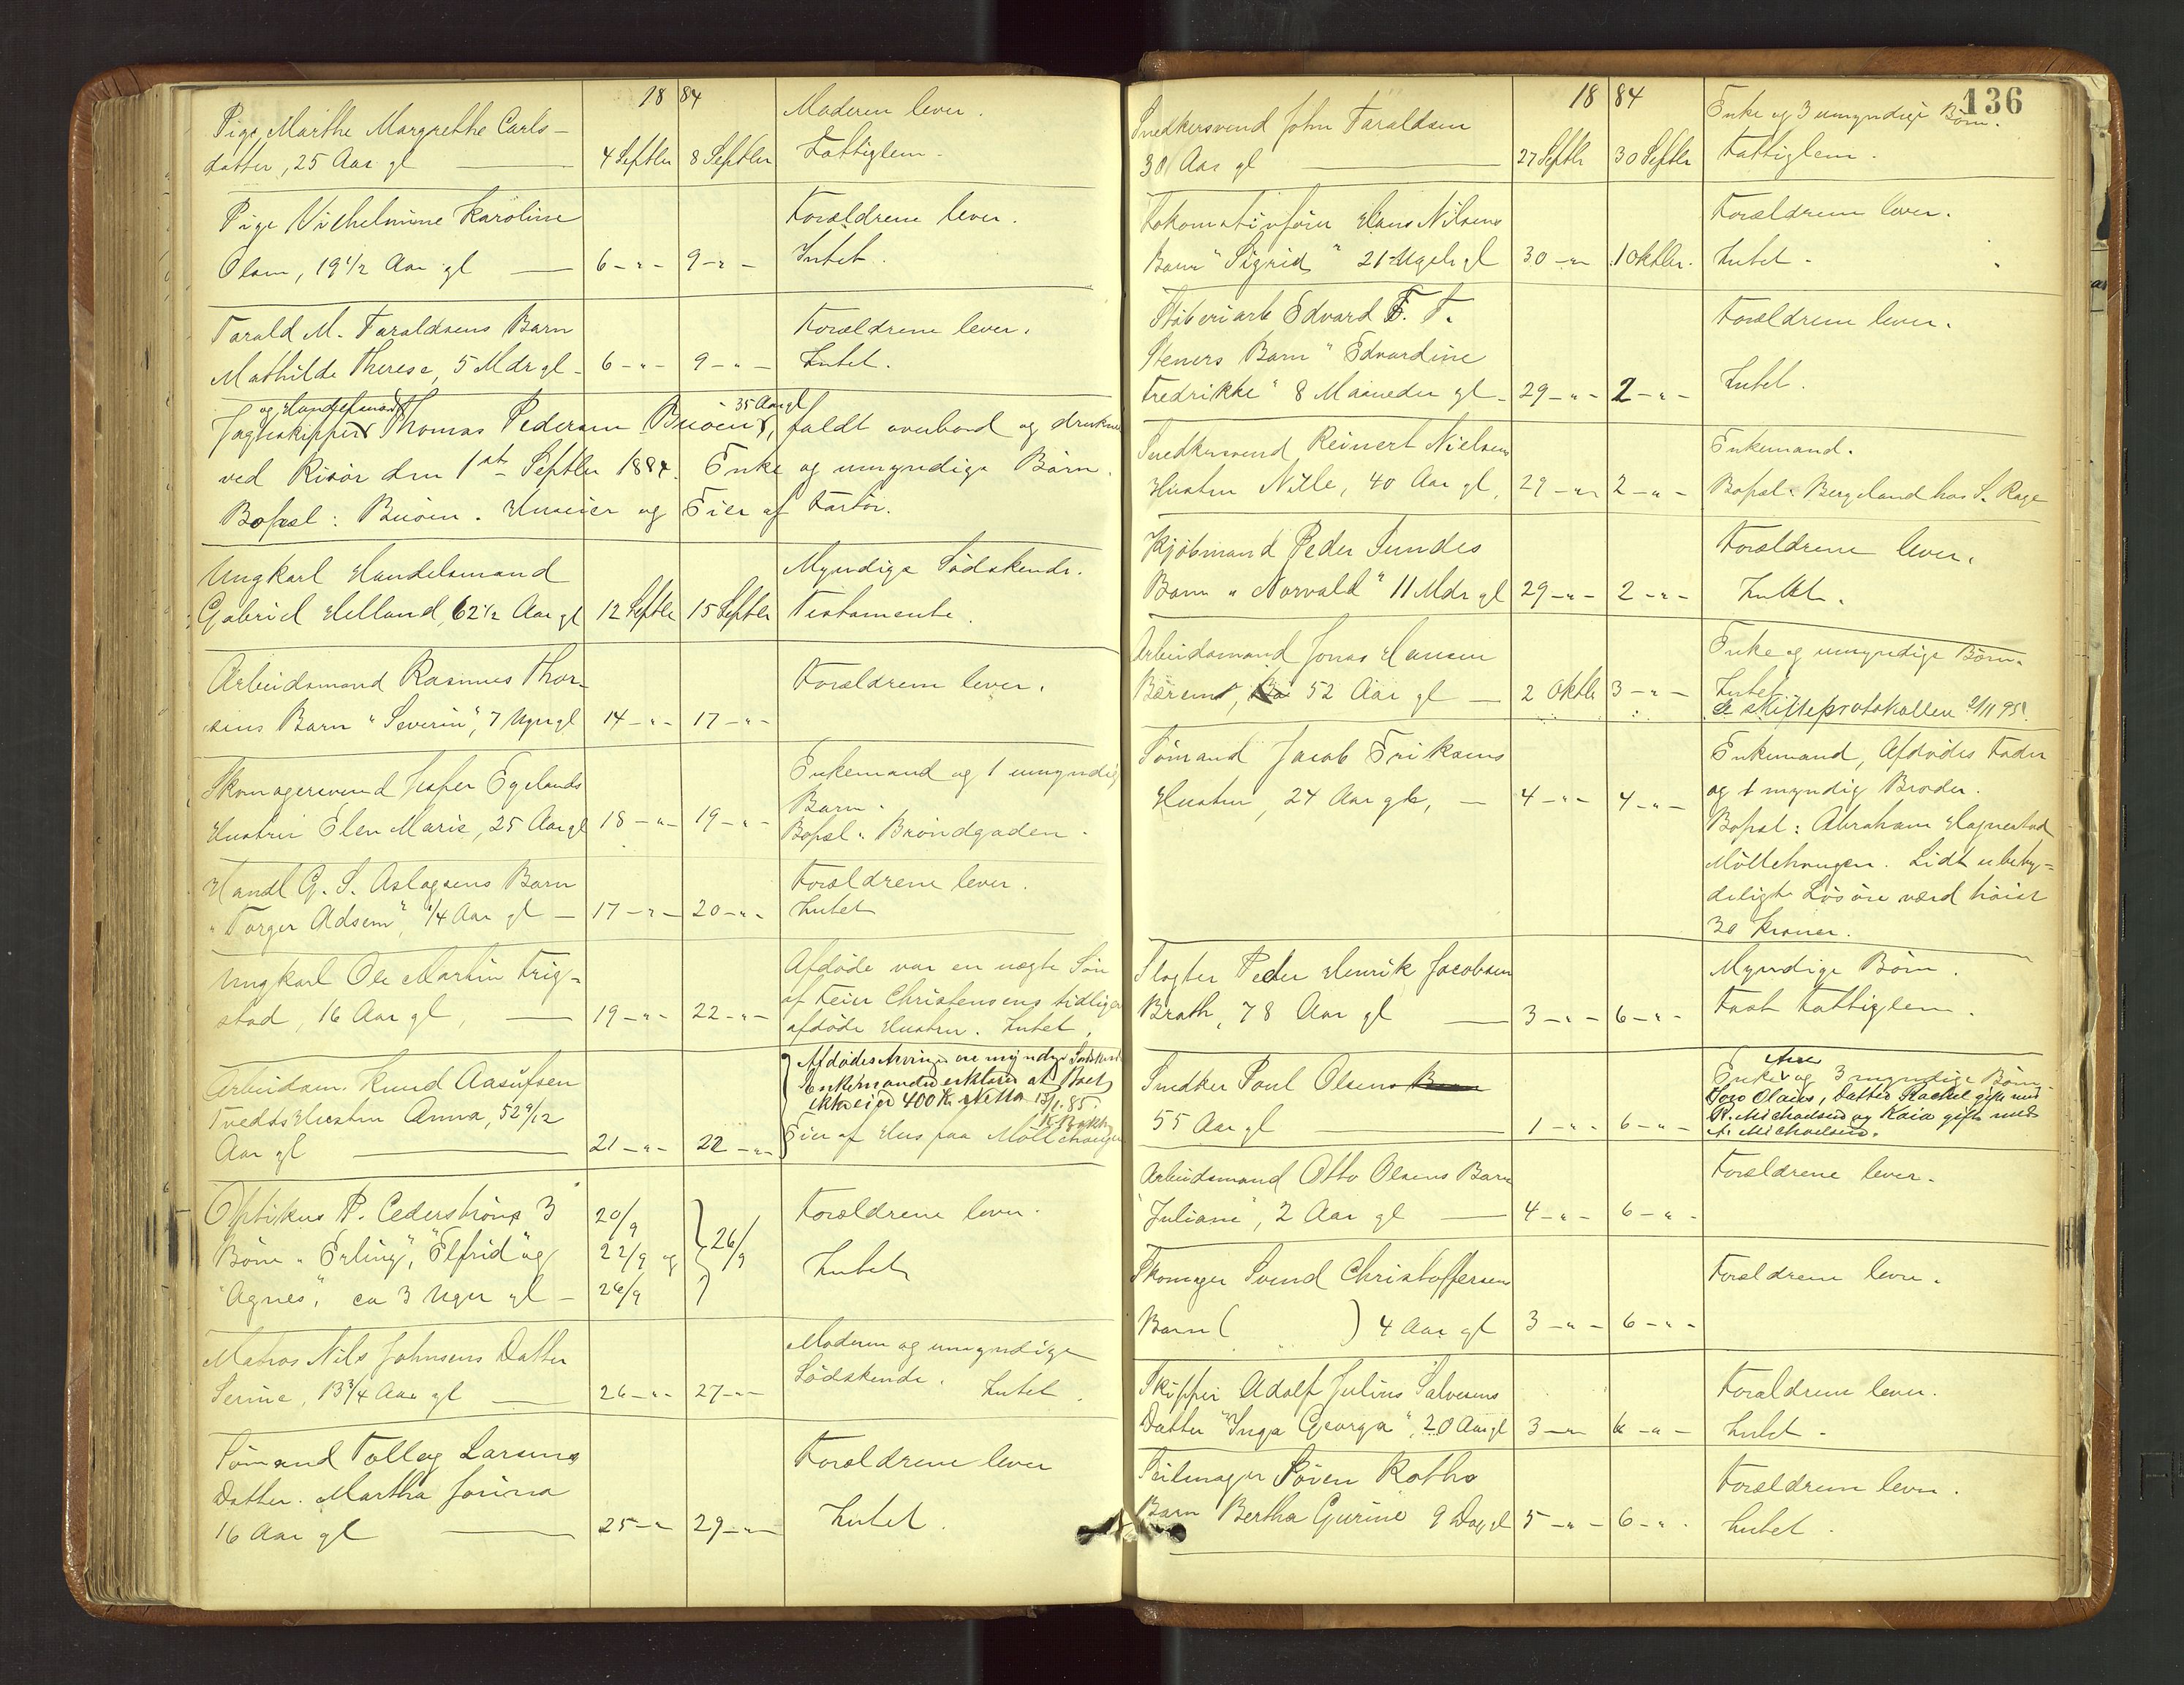 18 84
Pige, Marthe Margrethe Carls-
datter, 25 Aar gl — 4 Septbr 8 Septbr
Moderen lever.
Fattiglem.
Pige Vilhelmine Karoline
Olsen, 19 1/2 Aar gl — 6 - " - 9 - " -
Forældrene lever.
Intet.
Tarald M. Taraldsens Barn
Mathilde Therese, 5 Mdr gl - 6 - " - 9 - " -
Forældrene lever.
Intet.
og Handelsmand 35 Aar gl
Jagtskipper Thomas Pedersen Buöen, faldt overbord og druknede
ved Risör den 1ste Septbr 1884. Enke og umyndige Börn.
Bopæl: Buöen. Huseier og Eier af Fartöi.
Ungkarl Handelsmand
Gabriel Helland, 62 1/2 Aar gl 12 Septbr 15 Septbr
Myndige Södskende.
Testamente.
Arbeidsmand Rasmus Thor-
sens Barn "Severin", 7 Uger gl 14 - " - 17 - " -
Forældrene lever.
Skomagersvend Jesper Egelands
Hustru Elen Marie, 25 Aar gl 18 - " - 19 - " -
Enkemand og 1 umyndig
Barn.
Bopæl: Bröndgaden.
Handl G. S. Aslagsens Barn
"Torger Adsem", 1/4 Aar gl - 17 - " - 20 - " -
Forældrene lever.
Intet
Ungkarl Ole Martin Frig-
stad, 16 Aar gl, — 19 - " - 22 - " -
Afdöde var en uægte Sön
af Feier Christensens tidligere
afdöde Hustru. Intet.
Arbeidsm. Knud Aasulfsen
Tvedts Hustru Anna, 52 9/12
Aar gl — 21 - " - 22 - " -
Afdödes Arvinger ere myndige Södskende
Enkemanden erklærer at Boet
ikke eier 400 K Netto 15/1. 85.
Eier af Hus paa Möllehaugen
Optikus P. Cederströms 3
Börn "Erling", "Elfrid" og
"Agnes", ca 3 Uger gl -
20/9
22/9 og
26/9
26/9
Forældrene lever.
Intet
Matros Nils Johnsens Datter
Serine, 13 3/4 Aar gl — 26 - " - 27 - " -
Moderen og umyndige
Södskende. Intet.
Sömand Tolleg Larsens
Datter. Martha Jorina
16 Aar gl — 25 - " - 29 - " -
Forældrene lever
Intet.
136
18 84
Snedkersvend John Taraldsen
30 Aar gl — 27 Septbr 30 Septbr
Enke og 3 umyndige Börn.
Fattiglem.
Lokomotivförer Hans Nilsens
Barn "Sigrid" 21 Uger gl 30 - " - 1 Oktbr.
Forældrene lever.
Intet.
Støberiarb Edvard F. T.
Steners Barn "Edvardine
Fredrikke" 8 Maaneder gl - 29 - " - 2 - " -
Forældrene lever.
Intet.
Snedkersvend Reinert Nielsens
Hustru Nille, 40 Aar gl, 29 - " - 2 - " -
Enkemand.
Bopæl: Bergeland hos S. Rage
Kjöbmand Peder Sundes
Barn "Norvald" 11 Mdr gl 29 - " - 2 - " -
Forældrene lever.
Intet.
Arbeidsmand Jonas Hansen
Bærem, 52 Aar gl — 2 Oktbr 3 - " -
Enke og umyndige Börn.
Intet.
Se skifteprotokollen 2/11 95.
Sömand Jacob Eriksens
Hustru, 24 Aar gl, — 4 - " - 4 - " -
Enkemand, Afdödes Fader
og 1 myndig Broder.
Bopæl: Abraham Hognestad
Möllehaugen. Lidt ubety-
deligt Lösöre værd höist
30 Kroner.
Slagter Peder Henrik Jacobsen
Brath, 78 Aar gl — 3 - " - 6 - " -
Myndige Börn.
Fast Fattiglem.
Snedker Poul Olsens
55 Aar gl — 1 - " - 6 - " -
Enke og 3 myndige Börn
Olaus, Datter Rachel gift med
R. Michaelsen og Kaia gift med
A. Michaelsen.
Arbeidsmand Otto Olsens Barn
"Juliane", 2 Aar gl — 4 - " - 6 - " -
Forældrene lever.
Skomager Svend Christoffersens
Barn ( ) 4 Aar gl 3 - " - 6 - " -
Forældrene lever.
Skipper Adolf Julius Salvesens
Datter "Inga Georga", 20 Aar gl 3 - " - 6 - " -
Forældrene lever.
Intet.
Seilmager Sören Roths
Barn Bertha Gurine 9 Dag gl 5 - " - 6 - " -
Forældrene lever.
Intet.